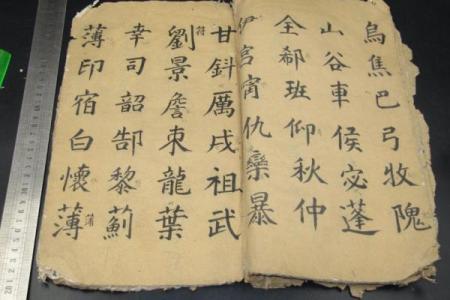 烏焦巴弓牧隗
山谷車侯宓蓬
全郗班仰秋仲
伊宮甯仇欒暴
甘鈄厲戌祖武
符
劉景詹束龍葉
幸司韶郜黎薊
薄印宿白懷薄
蒲